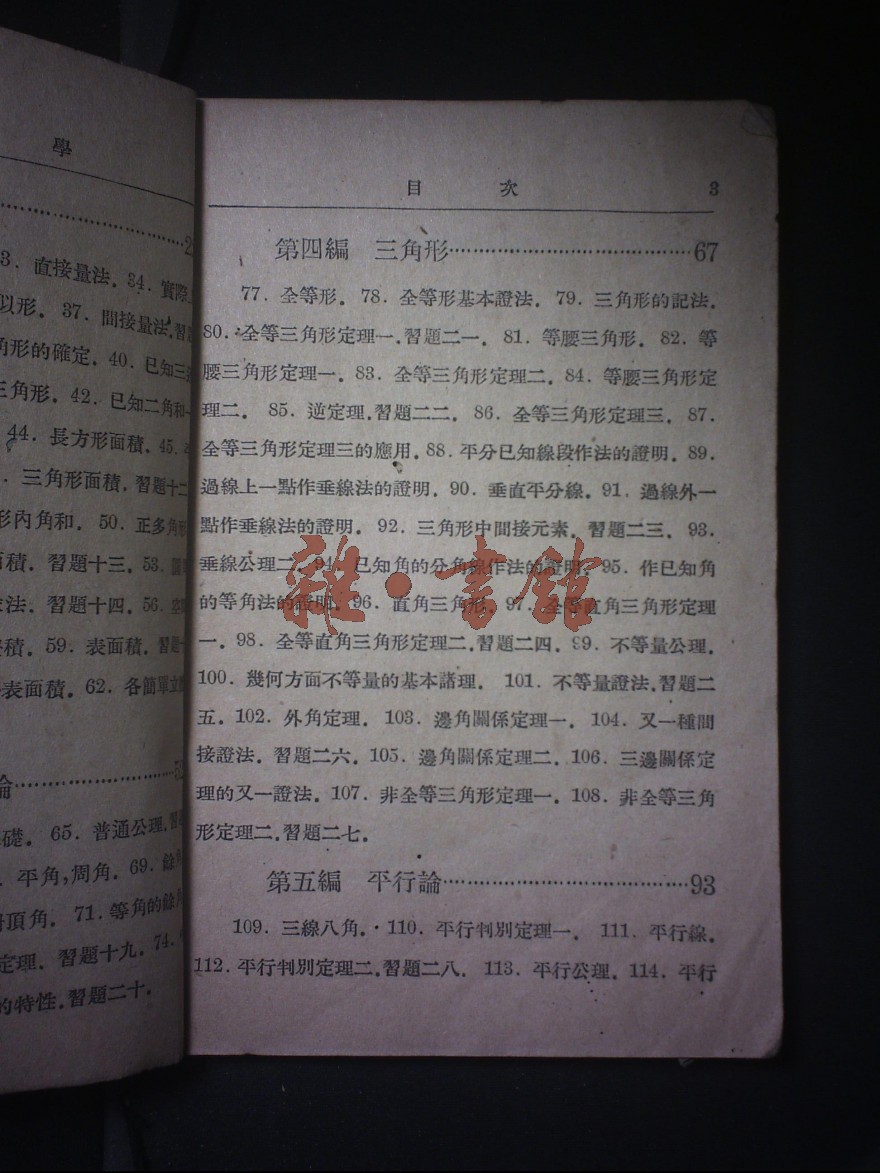 學
3. 直接量法. 34. 實際
以形. 37. 間接量法,習題
角形的確定. 40. 已知三
三角形. 42. 已知二角和一
44. 長方形面積. 45.
三角形面積. 習題十二
形內角和. 50. 正多角形
面積. 習題十三. 53.
法. 習題十四. 56.
積. 59. 表面積. 習題
表面積. 62. 各簡單立體
論
礎. 65. 普通公理.
平角,周角. 69. 餘角
頂角. 71. 等角的餘角
定理. 習題十九. 74.
的特性.習題二十.
目 次 3
第四編 三角形……………………………67
77. 全等形. 78. 全等形基本證法. 79. 三角形的記法.
80. 全等三角形定理一.習題二一. 81. 等腰三角形. 82. 等
腰三角形定理一. 83. 全等三角形定理二. 84. 等腰三角形定
理二. 85. 逆定理.習題二二. 86. 全等三角形定理三. 87.
全等三角形定理三的應用. 88. 平分已知線段作法的證明. 89.
過線上一點作垂線法的證明. 90. 垂直平分線. 91. 過線外一
點作垂線法的證明. 92. 三角形中間接元素. 習題二三. 93.
垂線公理二. 94. 已知角的分角線作法的證明. 95. 作已知角
的等角法的證明. 96. 直角三角形. 97. 全等直角三角形定理
一. 98. 全等直角三角形定理二.習題二四. 99. 不等量公理.
100. 幾何方面不等量的基本諸理. 101. 不等量證法.習題二
五. 102. 外角定理. 103. 邊角關係定理一. 104. 又一種間
接證法. 習題二六. 105. 邊角關係定理二. 106. 三邊關係定
理的又一證法. 107. 非全等三角形定理一. 108. 非全等三角
形定理二.習題二七.
第五編 平行論……………………………93
109. 三線八角. 110. 平行判別定理一. 111. 平行線.
112. 平行判別定理二.習題二八. 113. 平行公理. 114. 平行
雜·書館